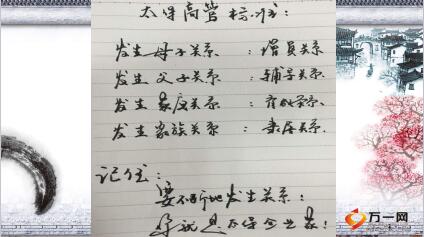 太保高管标准：
发生母子关系：增员关系
发生父子关系：辅导关系
发生家庭关系：育成关系
发生家族关系：隶属关系
记住：
要不断地发生关系：
你就是太保企业家！
万一网